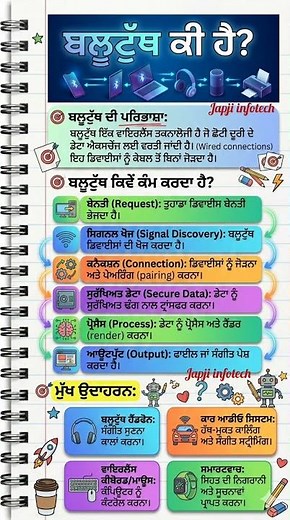 ਬਲੂਟੁੱਥ ਕੀ ਹੈ?
Japji infotech
ਬਲੂਟੁੱਥ ਦੀ ਪਰਿਭਾਸ਼ਾ:
ਬਲੂਟੁੱਥ ਇੱਕ ਵਾਇਰਲੈੱਸ ਤਕਨਾਲੋਜੀ ਹੈ ਜੋ ਛੋਟੀ ਦੂਰੀ ਦੇ
ਡੇਟਾ ਐਕਸਚੇਂਜ ਲਈ ਵਰਤੀ ਜਾਂਦੀ ਹੈ। (Wired connections)
ਇਹ ਡਿਵਾਈਸਾਂ ਨੂੰ ਕੇਬਲ ਤੋਂ ਬਿਨਾਂ ਜੋੜਦਾ ਹੈ।
ਬਲੂਟੁੱਥ ਕਿਵੇਂ ਕੰਮ ਕਰਦਾ ਹੈ?
ਬੇਨਤੀ (Request): ਤੁਹਾਡਾ ਡਿਵਾਈਸ ਬੇਨਤੀ
ਭੇਜਦਾ ਹੈ।
ਸਿਗਨਲ ਖੋਜ (Signal Discovery): ਬਲੂਟੁੱਥ
ਡਿਵਾਈਸਾਂ ਦੀ ਖੋਜ ਕਰਦਾ ਹੈ।
ਕਨੈਕਸ਼ਨ (Connection): ਡਿਵਾਈਸਾਂ ਨੂੰ ਜੋੜਨਾ
ਅਤੇ ਪੇਅਰਿੰਗ (pairing) ਕਰਨਾ।
ਸੁਰੱਖਿਅਤ ਡੇਟਾ (Secure Data): ਡੇਟਾ ਨੂੰ
ਸੁਰੱਖਿਅਤ ਢੰਗ ਨਾਲ ਟ੍ਰਾਂਸਫਰ ਕਰਨਾ।
ਪ੍ਰੋਸੈਸ (Process): ਡੇਟਾ ਨੂੰ ਪ੍ਰੋਸੈਸ ਅਤੇ ਰੈਂਡਰ
(render) ਕਰਨਾ।
ਆਉਟਪੁੱਟ (Output): ਫਾਈਲ ਜਾਂ ਸੰਗੀਤ ਪੇਸ਼
ਕਰਦਾ ਹੈ।
Japji infotech
ਮੁੱਖ ਉਦਾਹਰਨ:
ਬਲੂਟੁੱਥ ਹੈੱਡਫੋਨ:
ਸੰਗੀਤ ਸੁਣਨਾ
ਕਾਲਾਂ ਕਰਨਾ।
ਕਾਰ ਆਡੀਓ ਸਿਸਟਮ:
ਹੱਥ-ਮੁਕਤ ਕਾਲਿੰਗ
ਅਤੇ ਸੰਗੀਤ ਸਟ੍ਰੀਮਿੰਗ।
ਵਾਇਰਲੈੱਸ
ਕੀਬੋਰਡ/ਮਾਊਸ:
ਕੰਪਿਊਟਰ ਨੂੰ
ਕੰਟਰੋਲ ਕਰਨਾ।
ਸਮਾਰਟਵਾਚ:
ਸਿਹਤ ਦੀ ਨਿਗਰਾਨੀ
ਅਤੇ ਸੂਚਨਾਵਾਂ
ਪ੍ਰਾਪਤ ਕਰਨਾ।